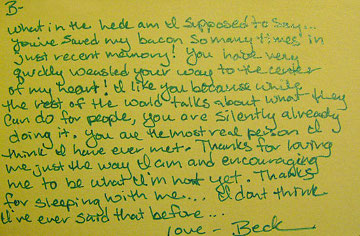 B-
what in the heck am I supposed to say...
you've saved my bacon so many times in
just recent memory! You have very
quickly weasled your way to the center
of my heart! I like you because while
the rest of the world talks about what they
can do for people, you are silently already
doing it. You are the most real person I
think I have ever met. Thanks for loving
me just the way I am and encouraging
me to be what I'm not yet. Thanks
for sleeping with me... I dont think
I've ever said that before...
love - Beck